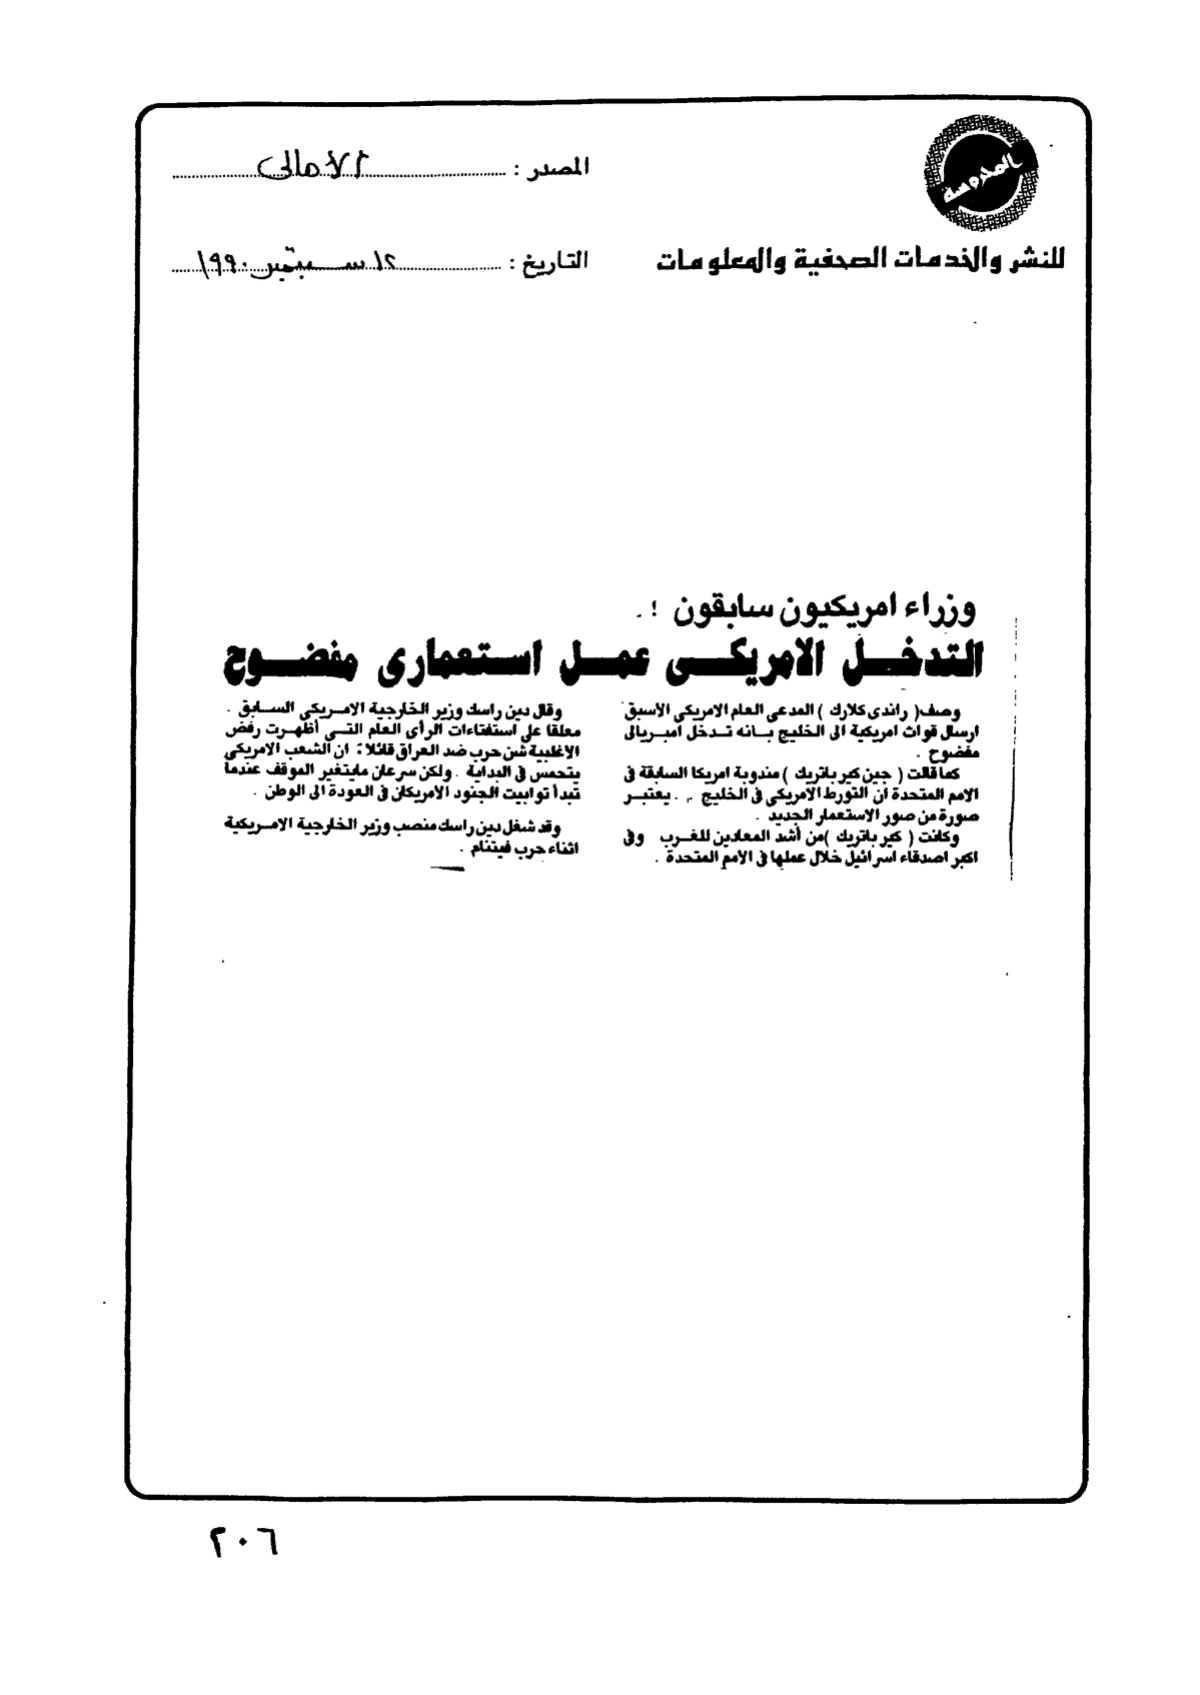 المدروسة
للنشر والخدمات الصحفية والمعلومات
المصدر : الأهالى
التاريخ : ١٢ سبتمبر ١٩٩٠
وزراء امريكيون سابقون !
التدخل الامريكى عمل استعمارى مفضوح
وصف ( راندى كلارك ) المدعى العام الامريكى الاسبق
ارسال قوات امريكية الى الخليج بانه تدخل امبريالى
مفضوح .
كما قالت ( جين كير باتريك ) مندوبة امريكا السابقة فى
الامم المتحدة ان التورط الامريكى فى الخليج .. يعتبر
صورة من صور الاستعمار الجديد .
وكانت ( كير باتريك ) من أشد المعادين للغرب وفى
اكبر اصدقاء اسرائيل خلال عملها فى الامم المتحدة .
وقال دين راسك وزير الخارجية الامريكى السابق .
معلقا على استفتاءات الرأى العام التى أظهرت رفض
الاغلبية شن حرب ضد العراق قائلا : ان الشعب الامريكى
يتحمس فى البداية . ولكن سرعان مايتغير الموقف عندما
تبدأ توابيت الجنود الامريكان فى العودة الى الوطن .
وقد شغل دين راسك منصب وزير الخارجية الامريكية
اثناء حرب فيتنام .
٢٠٦